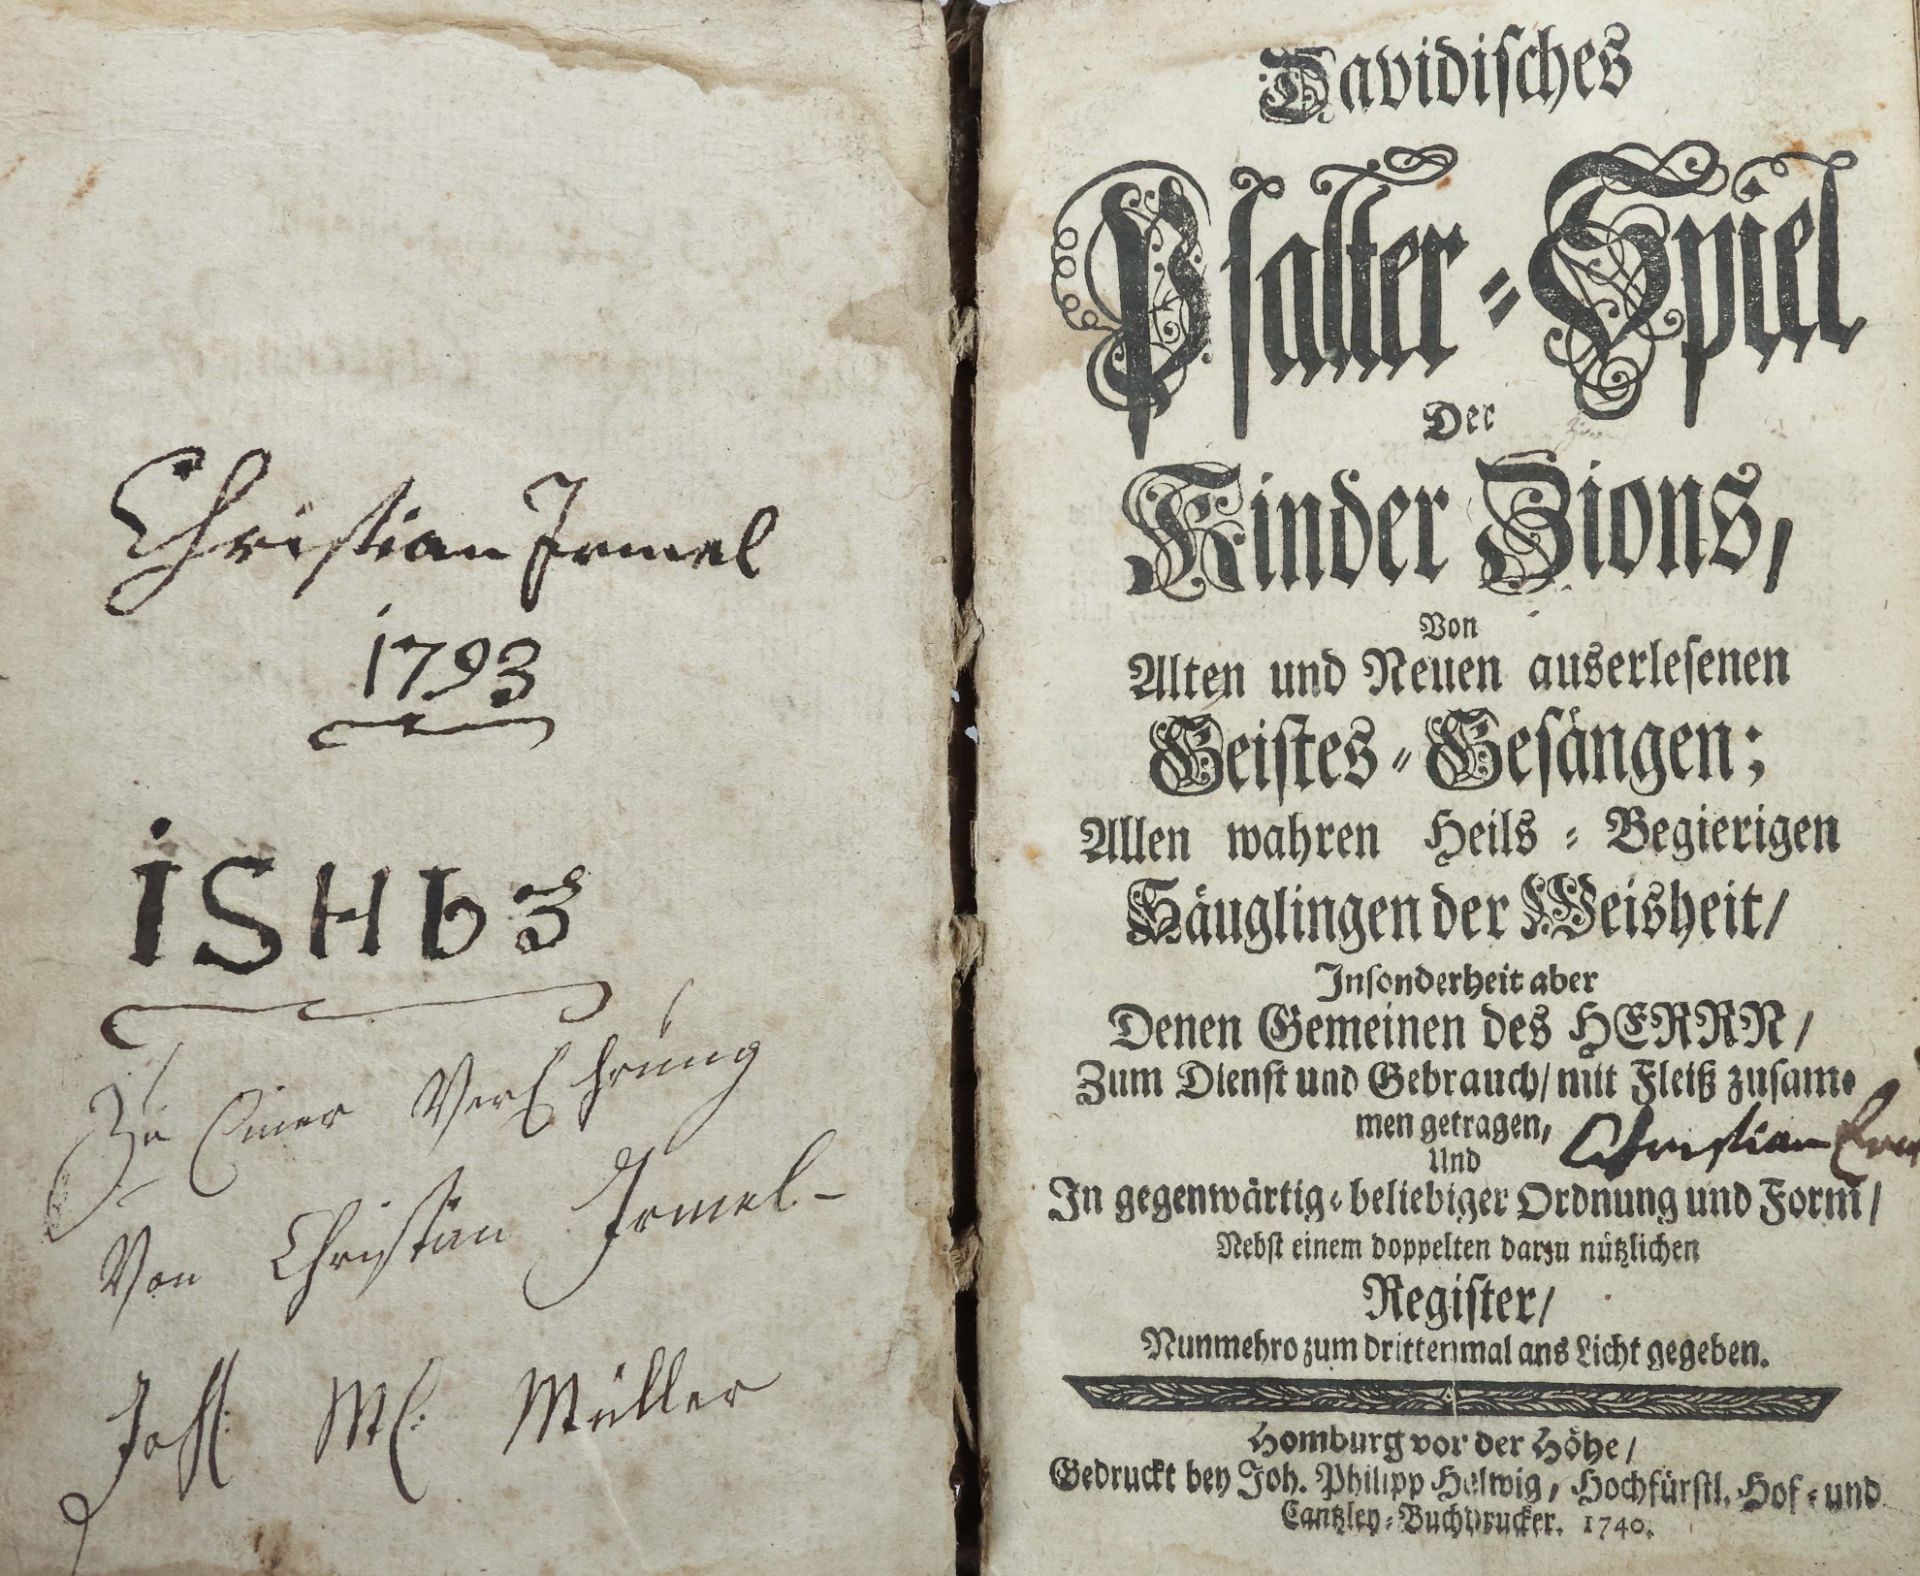 Christian Irmel
1793
ISHb3
Zu Einer VerEhrung
Von Christian Irmel-
Joh: Müller
Davidisches
Psalter-Spiel
Der
Kinder Zions,
Von
Alten und Neuen auserlesenen
Geistes-Gesängen;
Allen wahren Heils-Begierigen
Säuglingen der Weisheit/
Insonderheit aber
Denen Gemeinen des HERRN/
Zum Dienst und Gebrauch/ mit Fleiß zusam-
men getragen,
Christian
Und
In gegenwärtig-beliebiger Ordnung und Form/
Nebst einem doppelten darzu nützlichen
Register/
Nunmehro zum drittenmal ans Licht gegeben.
Homburg vor der Höhe/
Gedruckt bey Joh. Philipp Helwig, Hochfürstl. Hof- und
Cantzley-Buchdrucker. 1740.